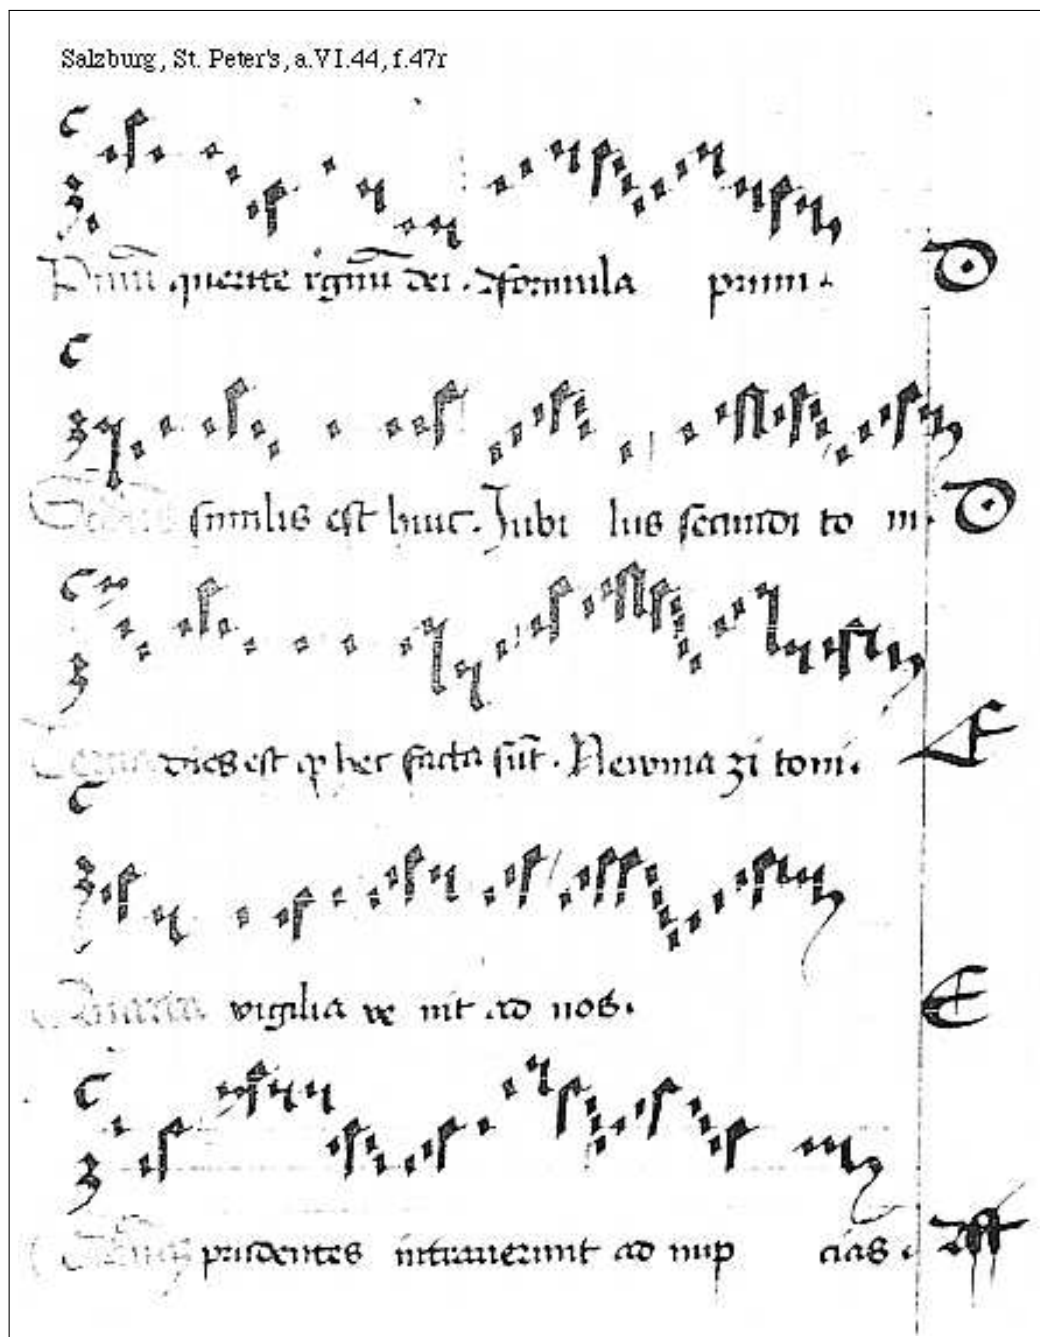 Salzburg, St. Peter's, a.VI.44, f.47r
querite dei. formula primi.
similis est huic. Jubi lus secundi to ni.
dies est hec facta sūt. Newma 3i toni.
vigilia ve nit ad nos.
prudentes intrauerunt ad nup cias.